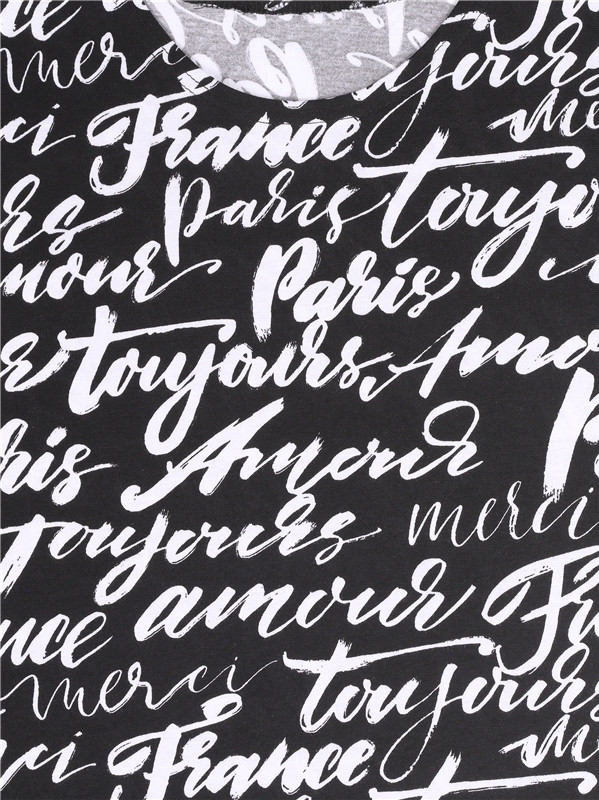 merci toujours
ci France me
rs Paris toujo
mour Paris
toujours Amo
ris Amour P
toujours merci
nce amour Fr
merci toujours
ci France me